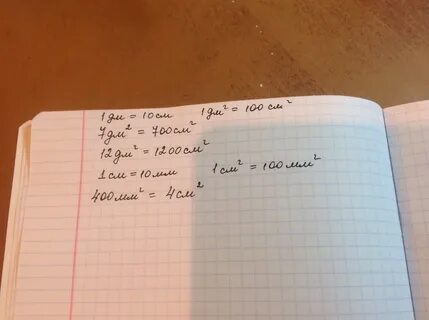 1 дм = 10 см 1 дм² = 100 см²
7 дм² = 700 см²
12 дм² = 1200 см²
1 см = 10 мм 1 см² = 100 мм²
400 мм² = 4 см²